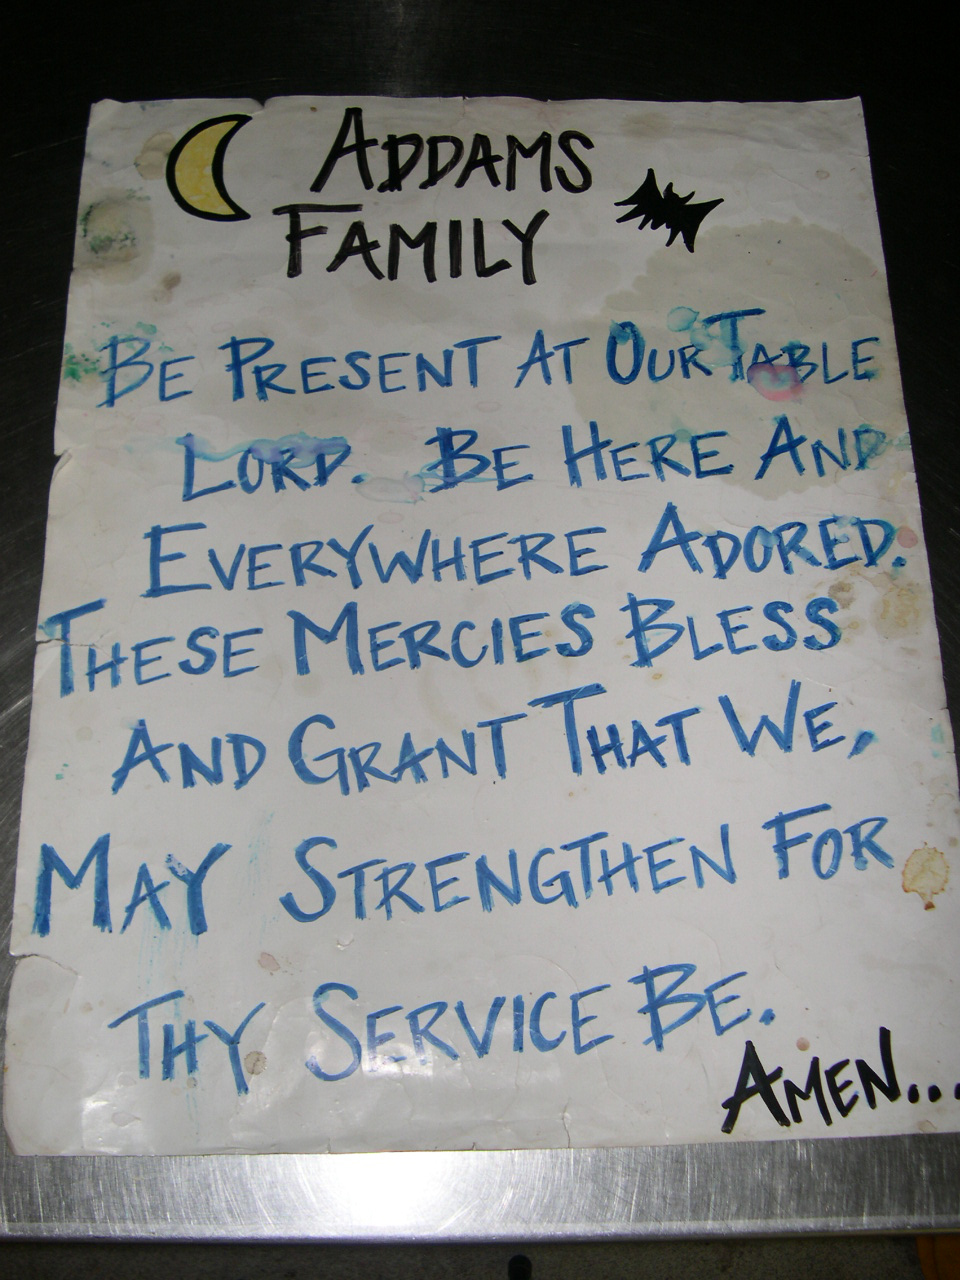 ADDAMS
FAMILY
BE PRESENT AT OUR TABLE
LORD. BE HERE AND
EVERYWHERE ADORED.
THESE MERCIES BLESS
AND GRANT THAT WE,
MAY STRENGTHEN FOR
THY SERVICE BE.
AMEN...